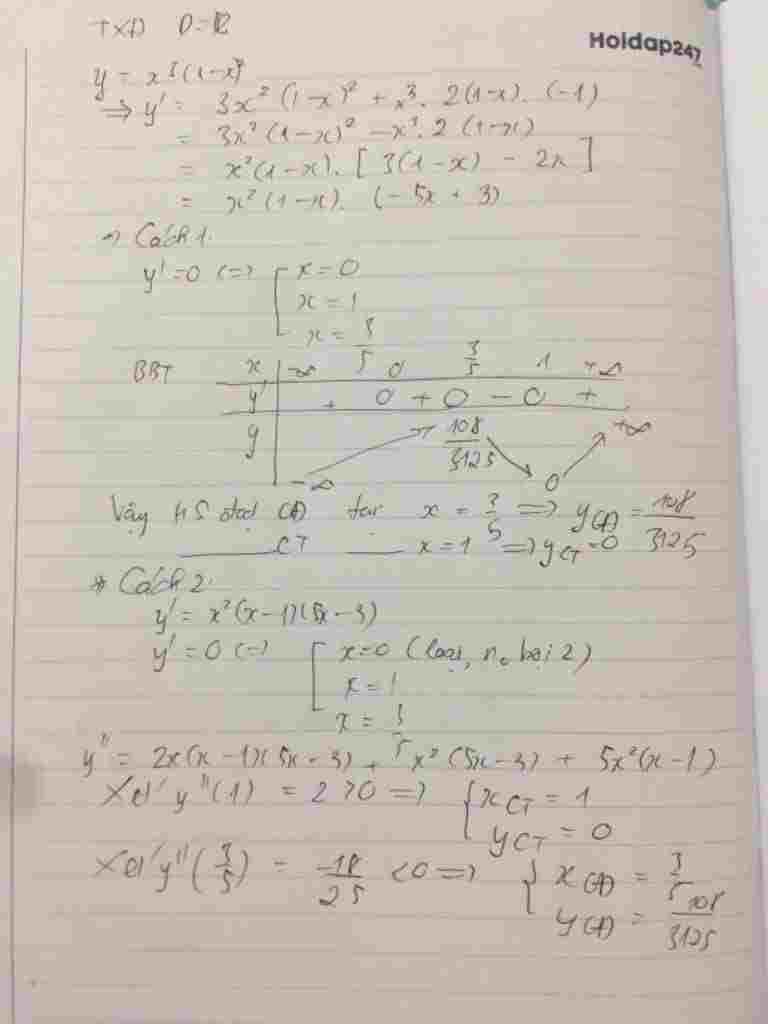 TXD D=R
Hoidap247
y = x³(1-x)²
=> y' = 3x²(1-x)² + x³. 2(1-x). (-1)
= 3x²(1-x)² - x³. 2(1-x)
= x²(1-x). [3(1-x) - 2x]
= x²(1-x). (-5x + 3)
Cách 1.
y'=0 (=) [ x=0
x = 1
x = 3/5
BBT x | -∞ 0 3/5 1 +∞
y' | + 0 + 0 - 0 +
y | -∞ 108/3125 0 +∞
Vậy HS đạt CĐ tại x = 3/5 => yCĐ = 108/3125
CT x = 1 => yCT = 0
* Cách 2.
y' = x²(x-1)(5x-3)
y' = 0 (=) [ x=0 (loại, no bội 2)
x = 1
x = 3/5
y'' = 2x(x-1)(5x-3) + x²(5x-3) + 5x²(x-1)
Xét y''(1) = 2 >0 => { xCT = 1
yCT = 0
Xét y''(3/5) = -18/25 <0 => { xCĐ = 3/5
yCĐ = 108/3125